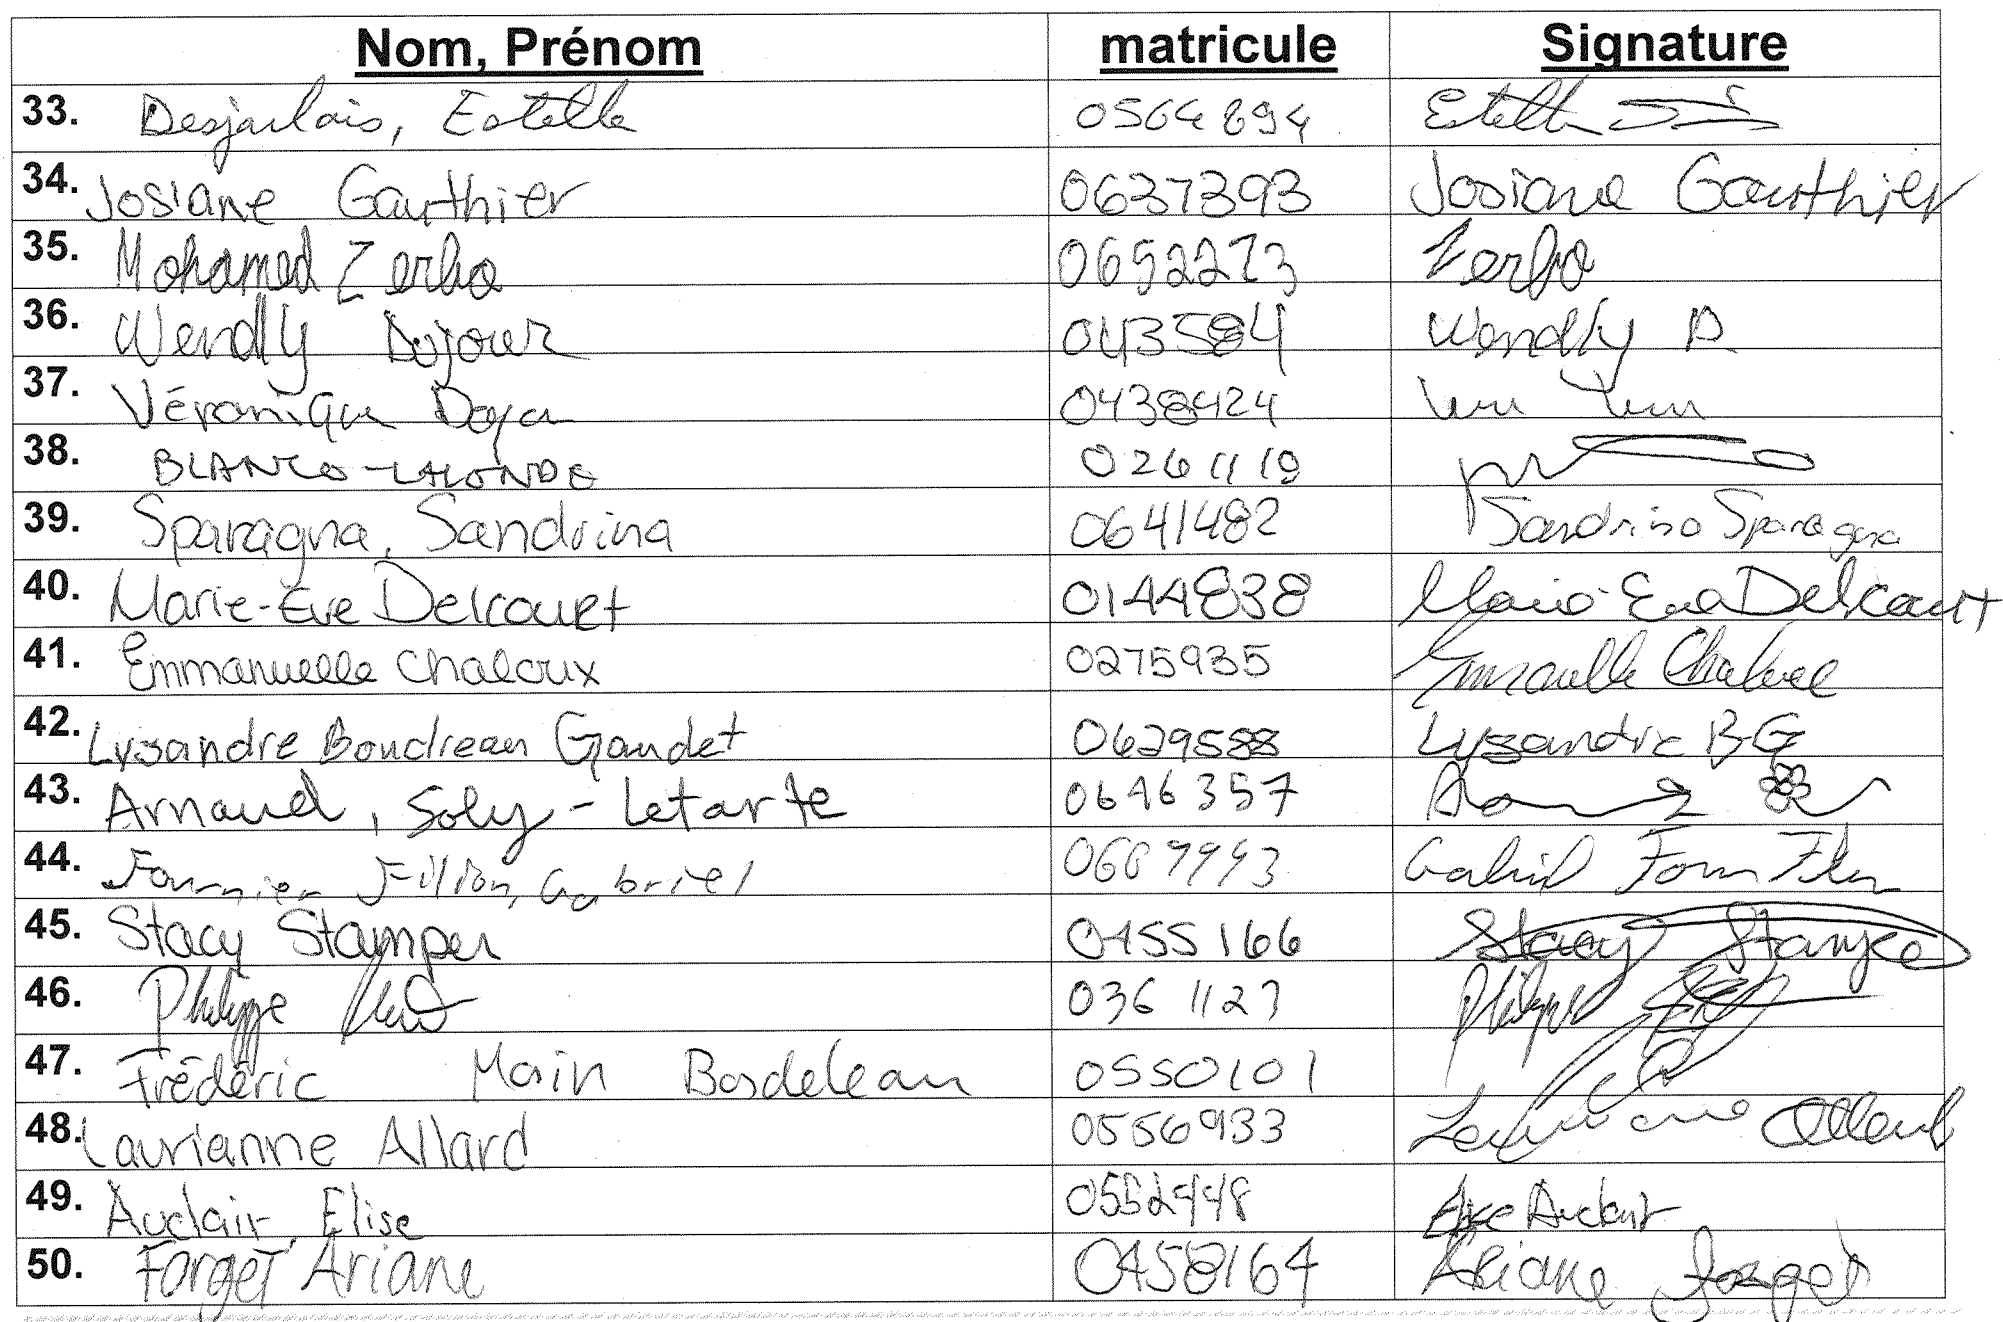 Nom, Prénom matricule Signature
33. Desjarlais, Estelle 0564894 Estelle
34. Josiane Gauthier 0637393 Josiane Gauthier
35. Mohamed Zerbo 0652273 Zerbo
36. Wendly Dojour 043584 Wendly D
37. Véronique Doyer 0438424
38. BLANCO-LALONDE 0261119
39. Sparagna, Sandrina 0641482 Sandrina Sparagna
40. Marie-Eve Delcourt 0144838 Marie-Eve Delcourt
41. Emmanuelle Chaloux 0275935 Emmanuelle Chaloux
42. Lysandre Boudreau Gaudet 0629588 Lysandre B-G
43. Arnaud, Soly-Letarte 0646357
44. Fournier Filion, Gabriel 0607993 Gabriel Fourn Filion
45. Stacy Stamper 0455166 Stacy Stamper
46. Philippe 0361127 Philippe
47. Frédéric Morin Bordeleau 0550101
48. Laurianne Allard 0556933 Laurianne Allard
49. Auclair, Elise 0552448 Elise Auclair
50. Forget Ariane 0458164 Ariane Forget